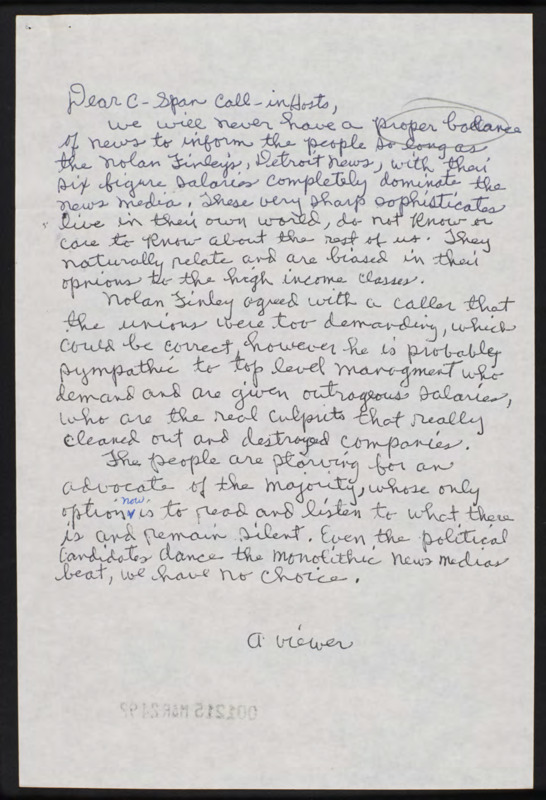 Dear C-Span Call-in Hosts,
we will never have a proper ballance
of news to inform the people so long as
the Nolan Finleys, Detroit News, with their
six figure salaries completely dominate the
news media. These very sharp sophisticates
live in their own world, do not know or
care to know about the rest of us. They
naturally relate and are biased in their
opnions to the high income classes.
Nolan Finley agreed with a caller that
the unions were too demanding, which
could be correct, however he is probably
sympathic to top level managment who
demand and are given outrageous salaries,
who are the real culprits that really
cleaned out and destroyed companies.
The people are starving for an
advocate of the majority, whose only
option now is to read and listen to what there
is and remain silent. Even the political
candidates dance the monolithic news medias
beat, we have no choice.
A viewer
001215 MAR24 92